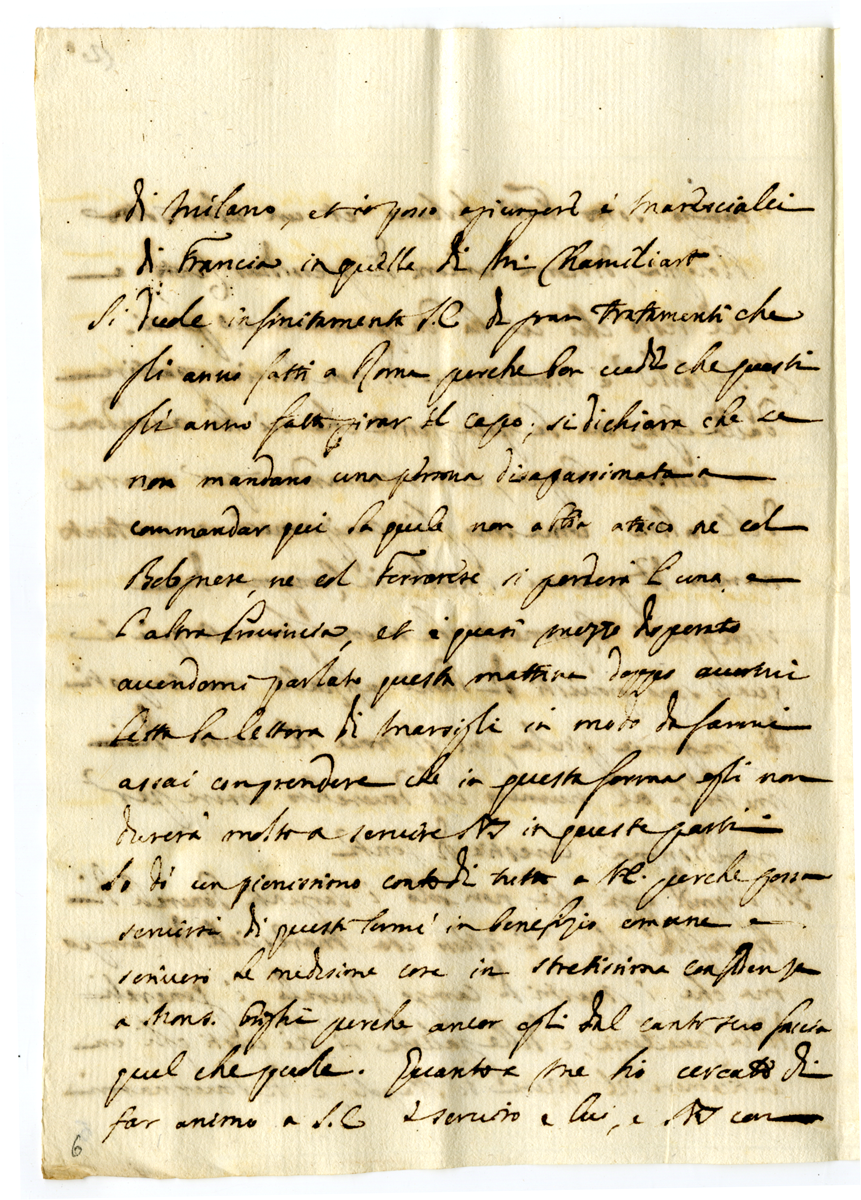 di Milano, et io posso agiungere i Marescialli
di Francia in quelle di Mr Chamillart
Si duole infinitamente S.E. di gran trattamenti che
gli anno fatti a Roma perche ben vede che questi
gli anno fatto girar il capo; si dichiara che se
non mandano una persona disapassionata a
commandar qui la quale non abbia atacco ne col
Bolognese, ne col Ferrarese si perderà l'una e
l'altra Provincia, et è quasi mezzo disperato
avendomi parlato questa mattina doppo avermi
letta la lettera di Marsigli in modo da farmi
assai comprendere che in questa forma egli non
durerà molto a servire NS in queste parti
Io dò un pienissimo conto di tutto a VE. perche possa
servirsi di questi lumi in benefizio comune e
scriverò le medesime cose in stretissima confidenza
a Mons. perche ancor egli dal canto suo faccia
quel che puole. Quanto a me ho cercato di
far animo a S.E. e servirò e lui, e NS con
6